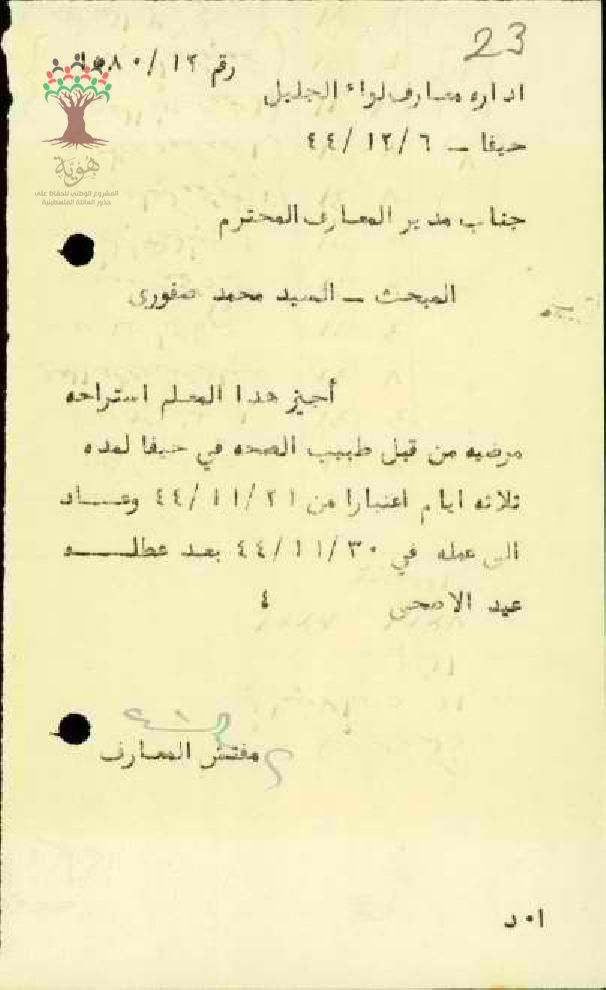 23
رقم ١٢/
اداره معارف لواء الجليل
حيفا – ٤٤/١٢/٦
هُوِيَّة
المشروع الوطني للحفاظ على
جذور العائلة الفلسطينية
جناب مدير المعارف المحترم
المبحث – السيد محمد صفوري
أجيز هذا المعلم استراحه
مرضيه من قبل طبيب الصحه في حيفا لمده
ثلاثه ايام اعتبارا من ٤٤/١١/٢١ وعـــاد
الى عمله في ٤٤/١١/٣٠ بعد عطلــــه
عيد الاضحى ٤
مفتش المعارف
ا٠د